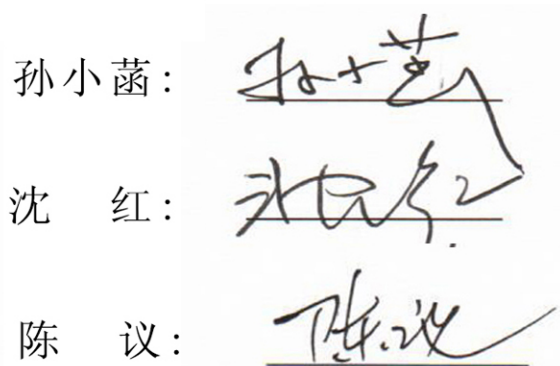 孙小菡: 孙小菡
沈 红: 沈红
陈 议: 陈议